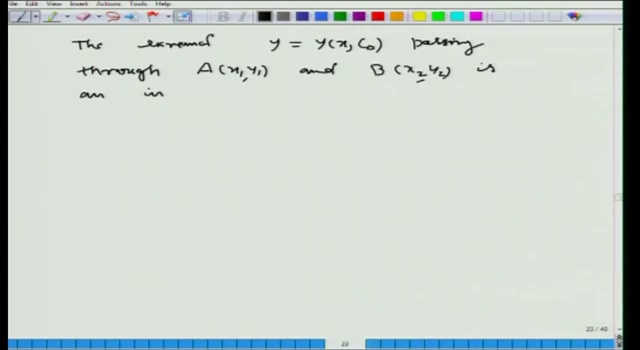 File Edit View Insert Actions Tools Help
The extremal y = y(x, C₀) passing
through A(x₁, y₁) and B(x₂, y₂) is
an in
23/40
23